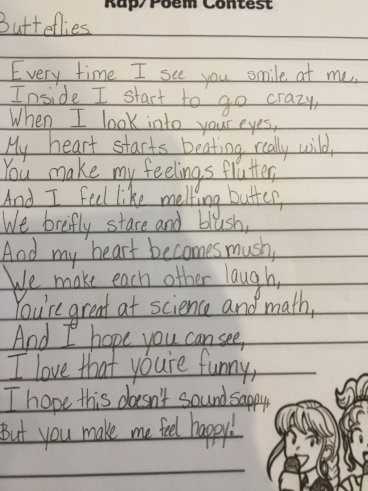 Rap/Poem Contest
Butteflies
Every time I see you smile at me,,
Inside I start to go crazy,
When I look into your eyes,
My heart starts beating really wild,
You make my feelings flutter,
And I feel like melting butter,
We breifly stare and blush,
And my heart becomes mush,
We make each other laugh,
You're great at science and math,
And I hope you can see,
I love that you're funny,
I hope this doesn't sound sappy,
But you make me feel happy!